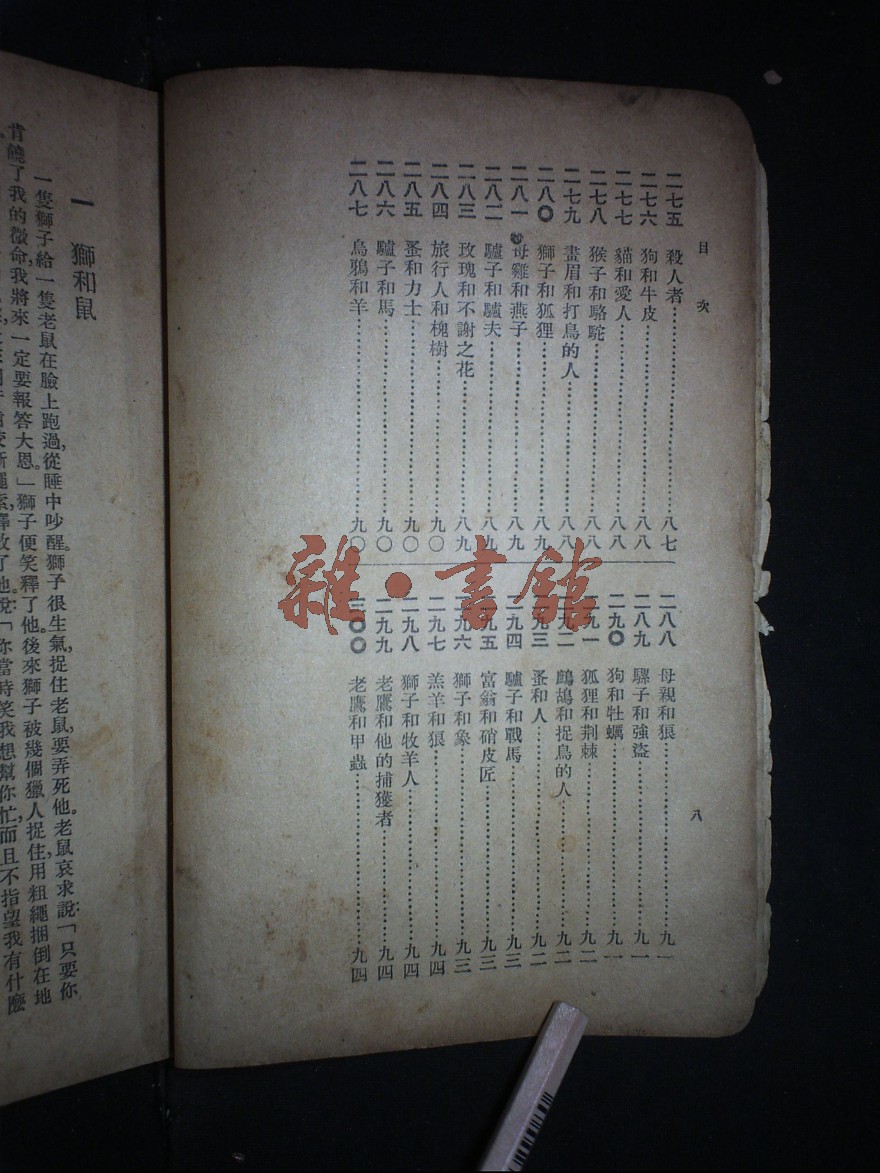 目次
二七五 殺人者 八七
二七六 狗和牛皮 八八
二七七 貓和愛人 八八
二七八 猴子和駱駝 八八
二七九 畫眉和打鳥的人 八八
二八〇 獅子和狐狸 八九
二八一 母雞和燕子 八九
二八二 驢子和驢夫 八九
二八三 玫瑰和不謝之花 八九
二八四 旅行人和槐樹 九〇
二八五 蚤和力士 九〇
二八六 驢子和馬 九〇
二八七 烏鴉和羊 九〇
二八八 母親和狼 九一
二八九 騾子和強盜 九一
二九〇 狗和牡蠣 九一
二九一 狐狸和荆棘 九二
二九二 鷓鴣和捉鳥的人 九二
二九三 蚤和人 九二
二九四 驢子和戰馬 九三
二九五 富翁和硝皮匠 九三
二九六 獅子和象 九三
二九七 羔羊和狼 九四
二九八 獅子和牧羊人 九四
二九九 老鷹和他的捕獲者 九四
三〇〇 老鷹和甲蟲 九四
八
雜·書館
一 獅和鼠
一隻獅子給一隻老鼠在臉上跑過,從睡中吵醒。獅子很生氣,捉住老鼠,要弄死他。老鼠哀求說:「只要你
肯饒了我的微命,我將來一定要報答大恩。」獅子便笑釋了他。後來獅子被幾個獵人捉住,用粗繩捆倒在地
繩索,釋放了他。說:「你當時笑我想幫你忙,而且不指望我有什麼